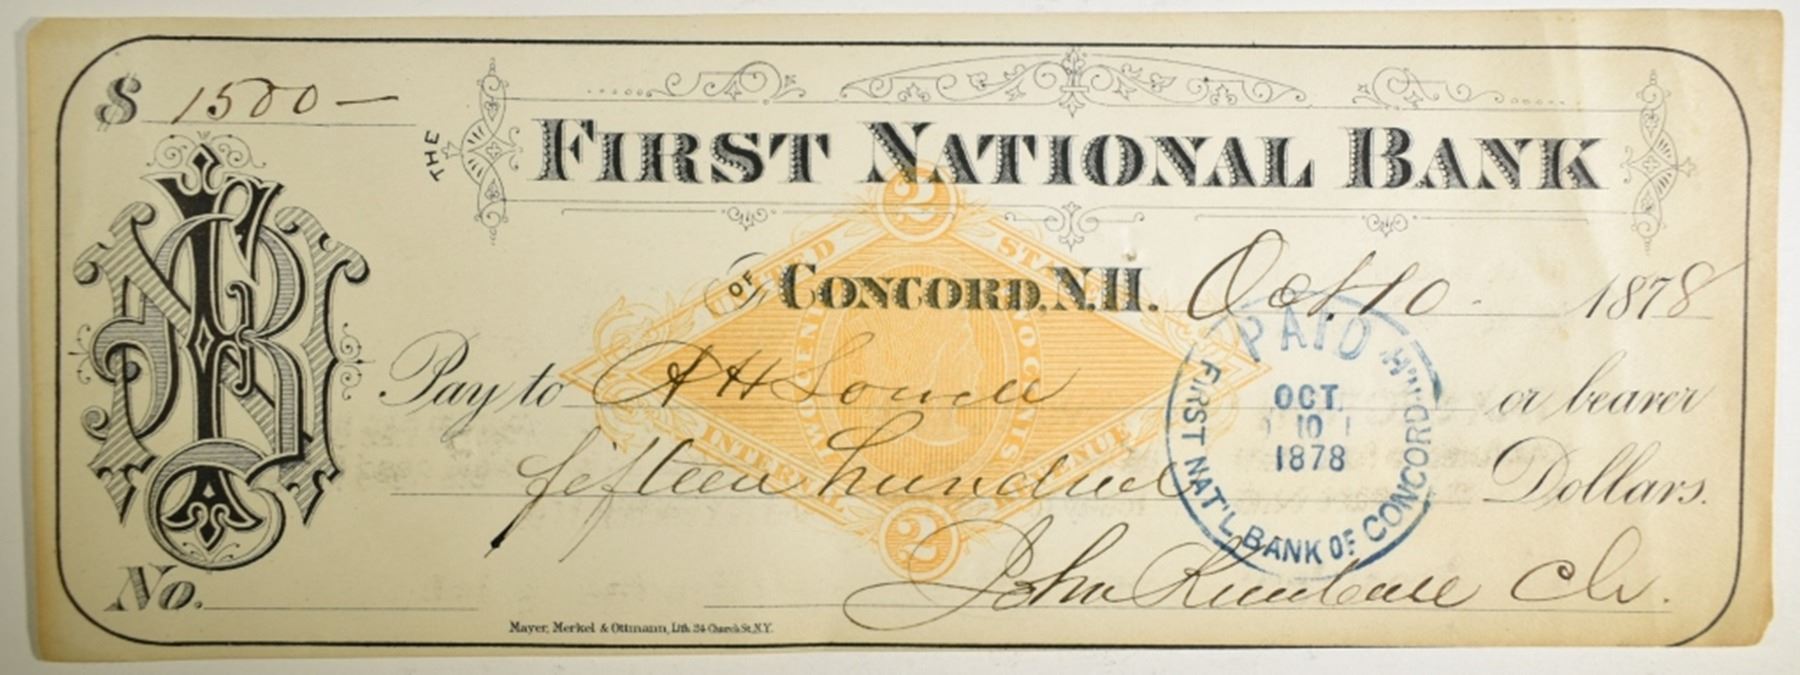 $ 1500 —
THE FIRST NATIONAL BANK
OF CONCORD, N.H. Oct. 10 1878
Pay to A H Lowell or bearer
fifteen hundred Dollars.
John Kimball Ch.
No.
Mayer, Merkel & Ottmann, Lith. 24 Church St. N.Y.
2
UNITED STATES
TWO CENTS
INTERNAL REVENUE
2
PAID
OCT.
10
1878
FIRST NAT'L BANK OF CONCORD N.H.